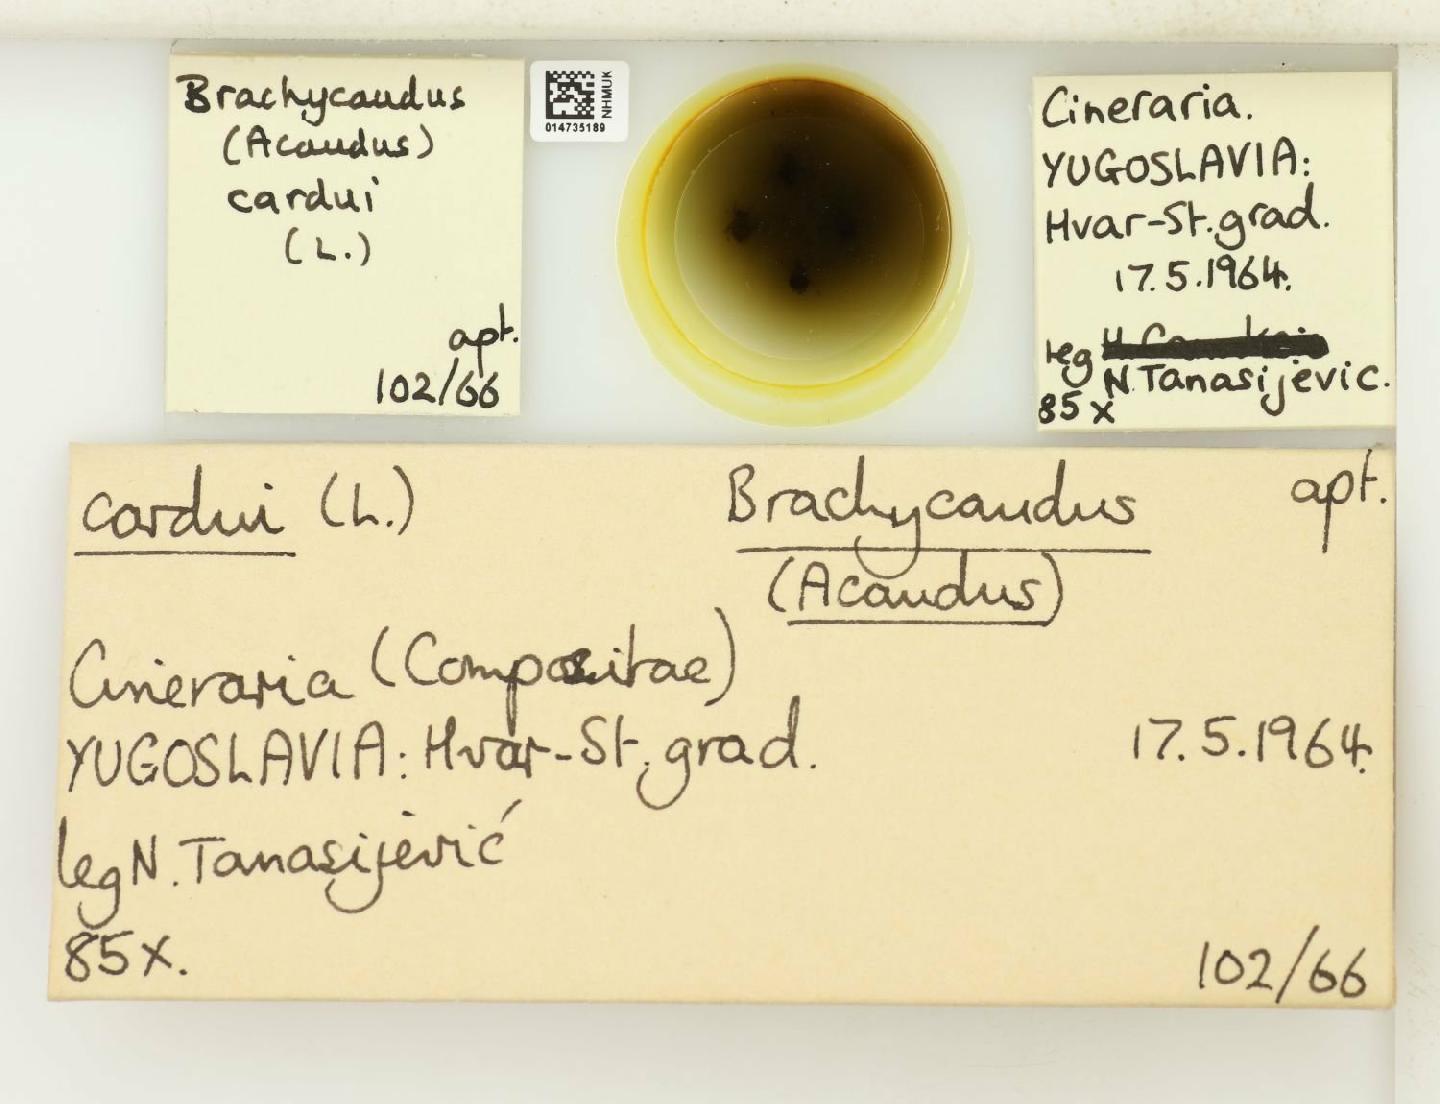 Brachycaudus
(Acaudus)
cardui
(L.)
apt.
102/66
NHMUK
014735189
Cineraria.
YUGOSLAVIA:
Hvar-St.grad.
17.5.1964.
leg
N.Tanasijevic.
85x
cardui (L.) Brachycaudus apt.
(Acaudus)
Cineraria (Compositae)
YUGOSLAVIA: Hvar-St.grad. 17.5.1964.
leg N. Tanasijević
85x. 102/66